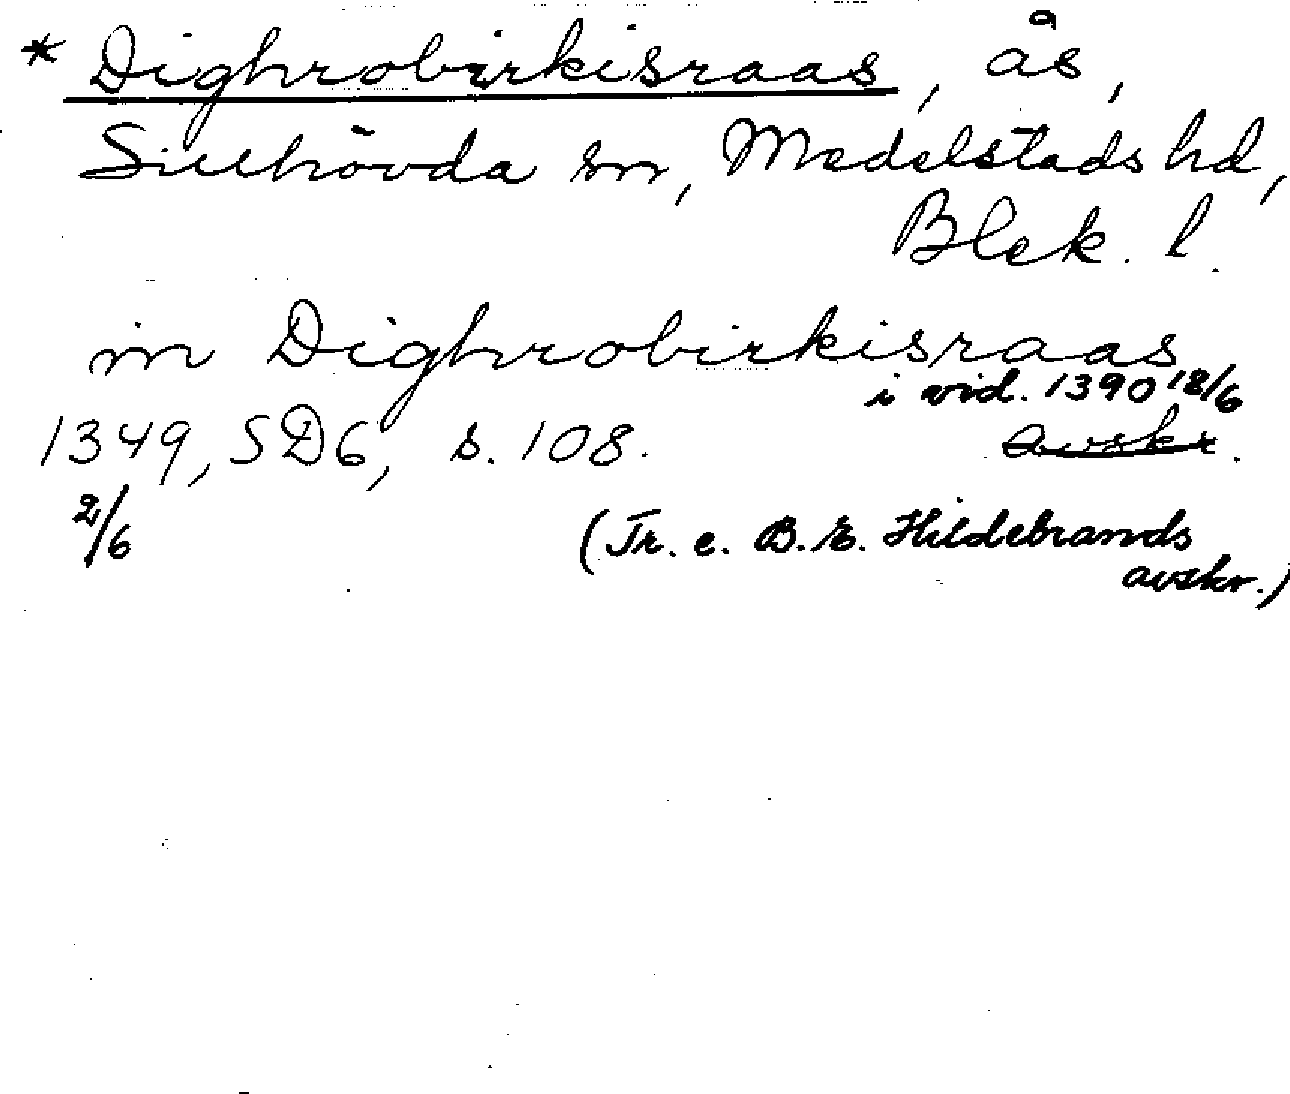 * Dighrobirkisraas, ås,
Sillhövda sn, Medelstads hd,
Blek. l.
in Dighrobirkisraas
i vid. 1390 18/6
1349, SD6, s. 108. avskr.
2/6 (Tr. e. B. E. Hildebrands
avskr.)